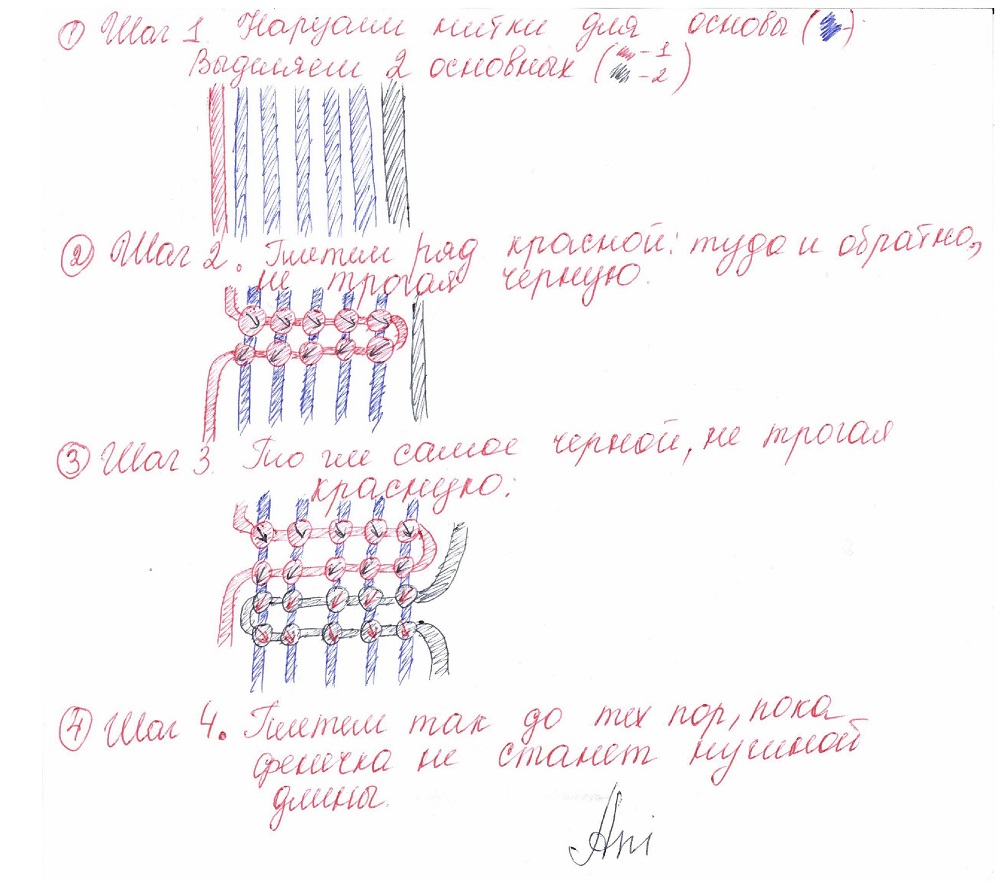 ① Шаг 1. Наружим нитки для основы ( - )
Выделяем 2 основных ( - 1
- 2 )
② Шаг 2. Плетем ряд красной: туда и обратно,
не трогая черную.
③ Шаг 3. То же самое черной, не трогая
красную:
④ Шаг 4. Плетем так до тех пор, пока
фенечка не станет нужной
длины.
Ani